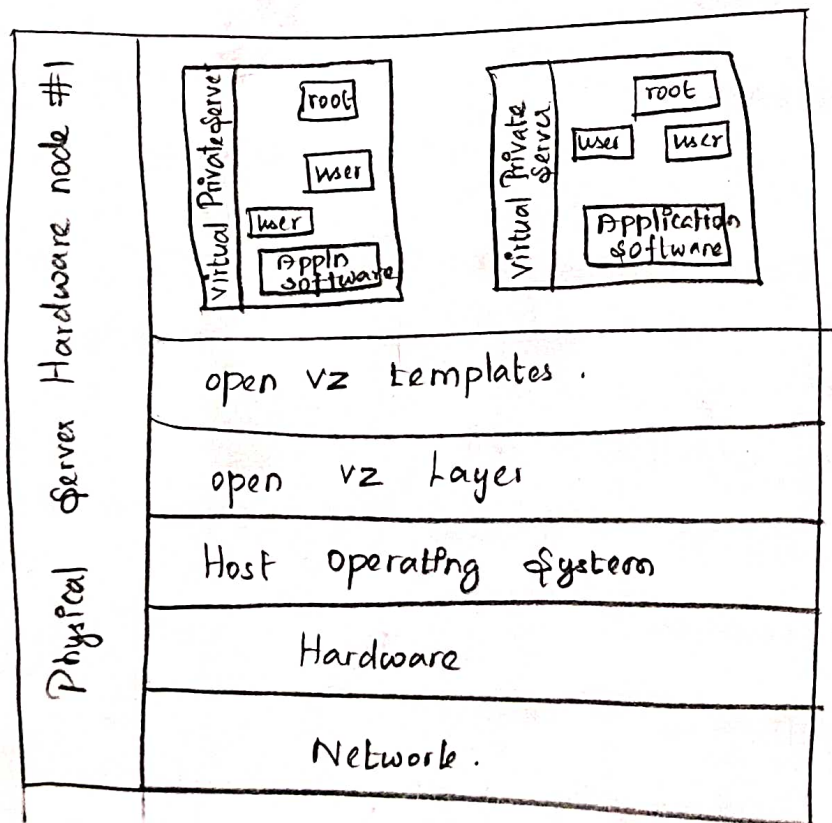 Physical Server Hardware node #1
Virtual Private Server
root
user
user
Appln
software
Virtual Private
Server
root
user user
Application
software
open vz templates.
open vz Layer
Host operating System
Hardware
Network.